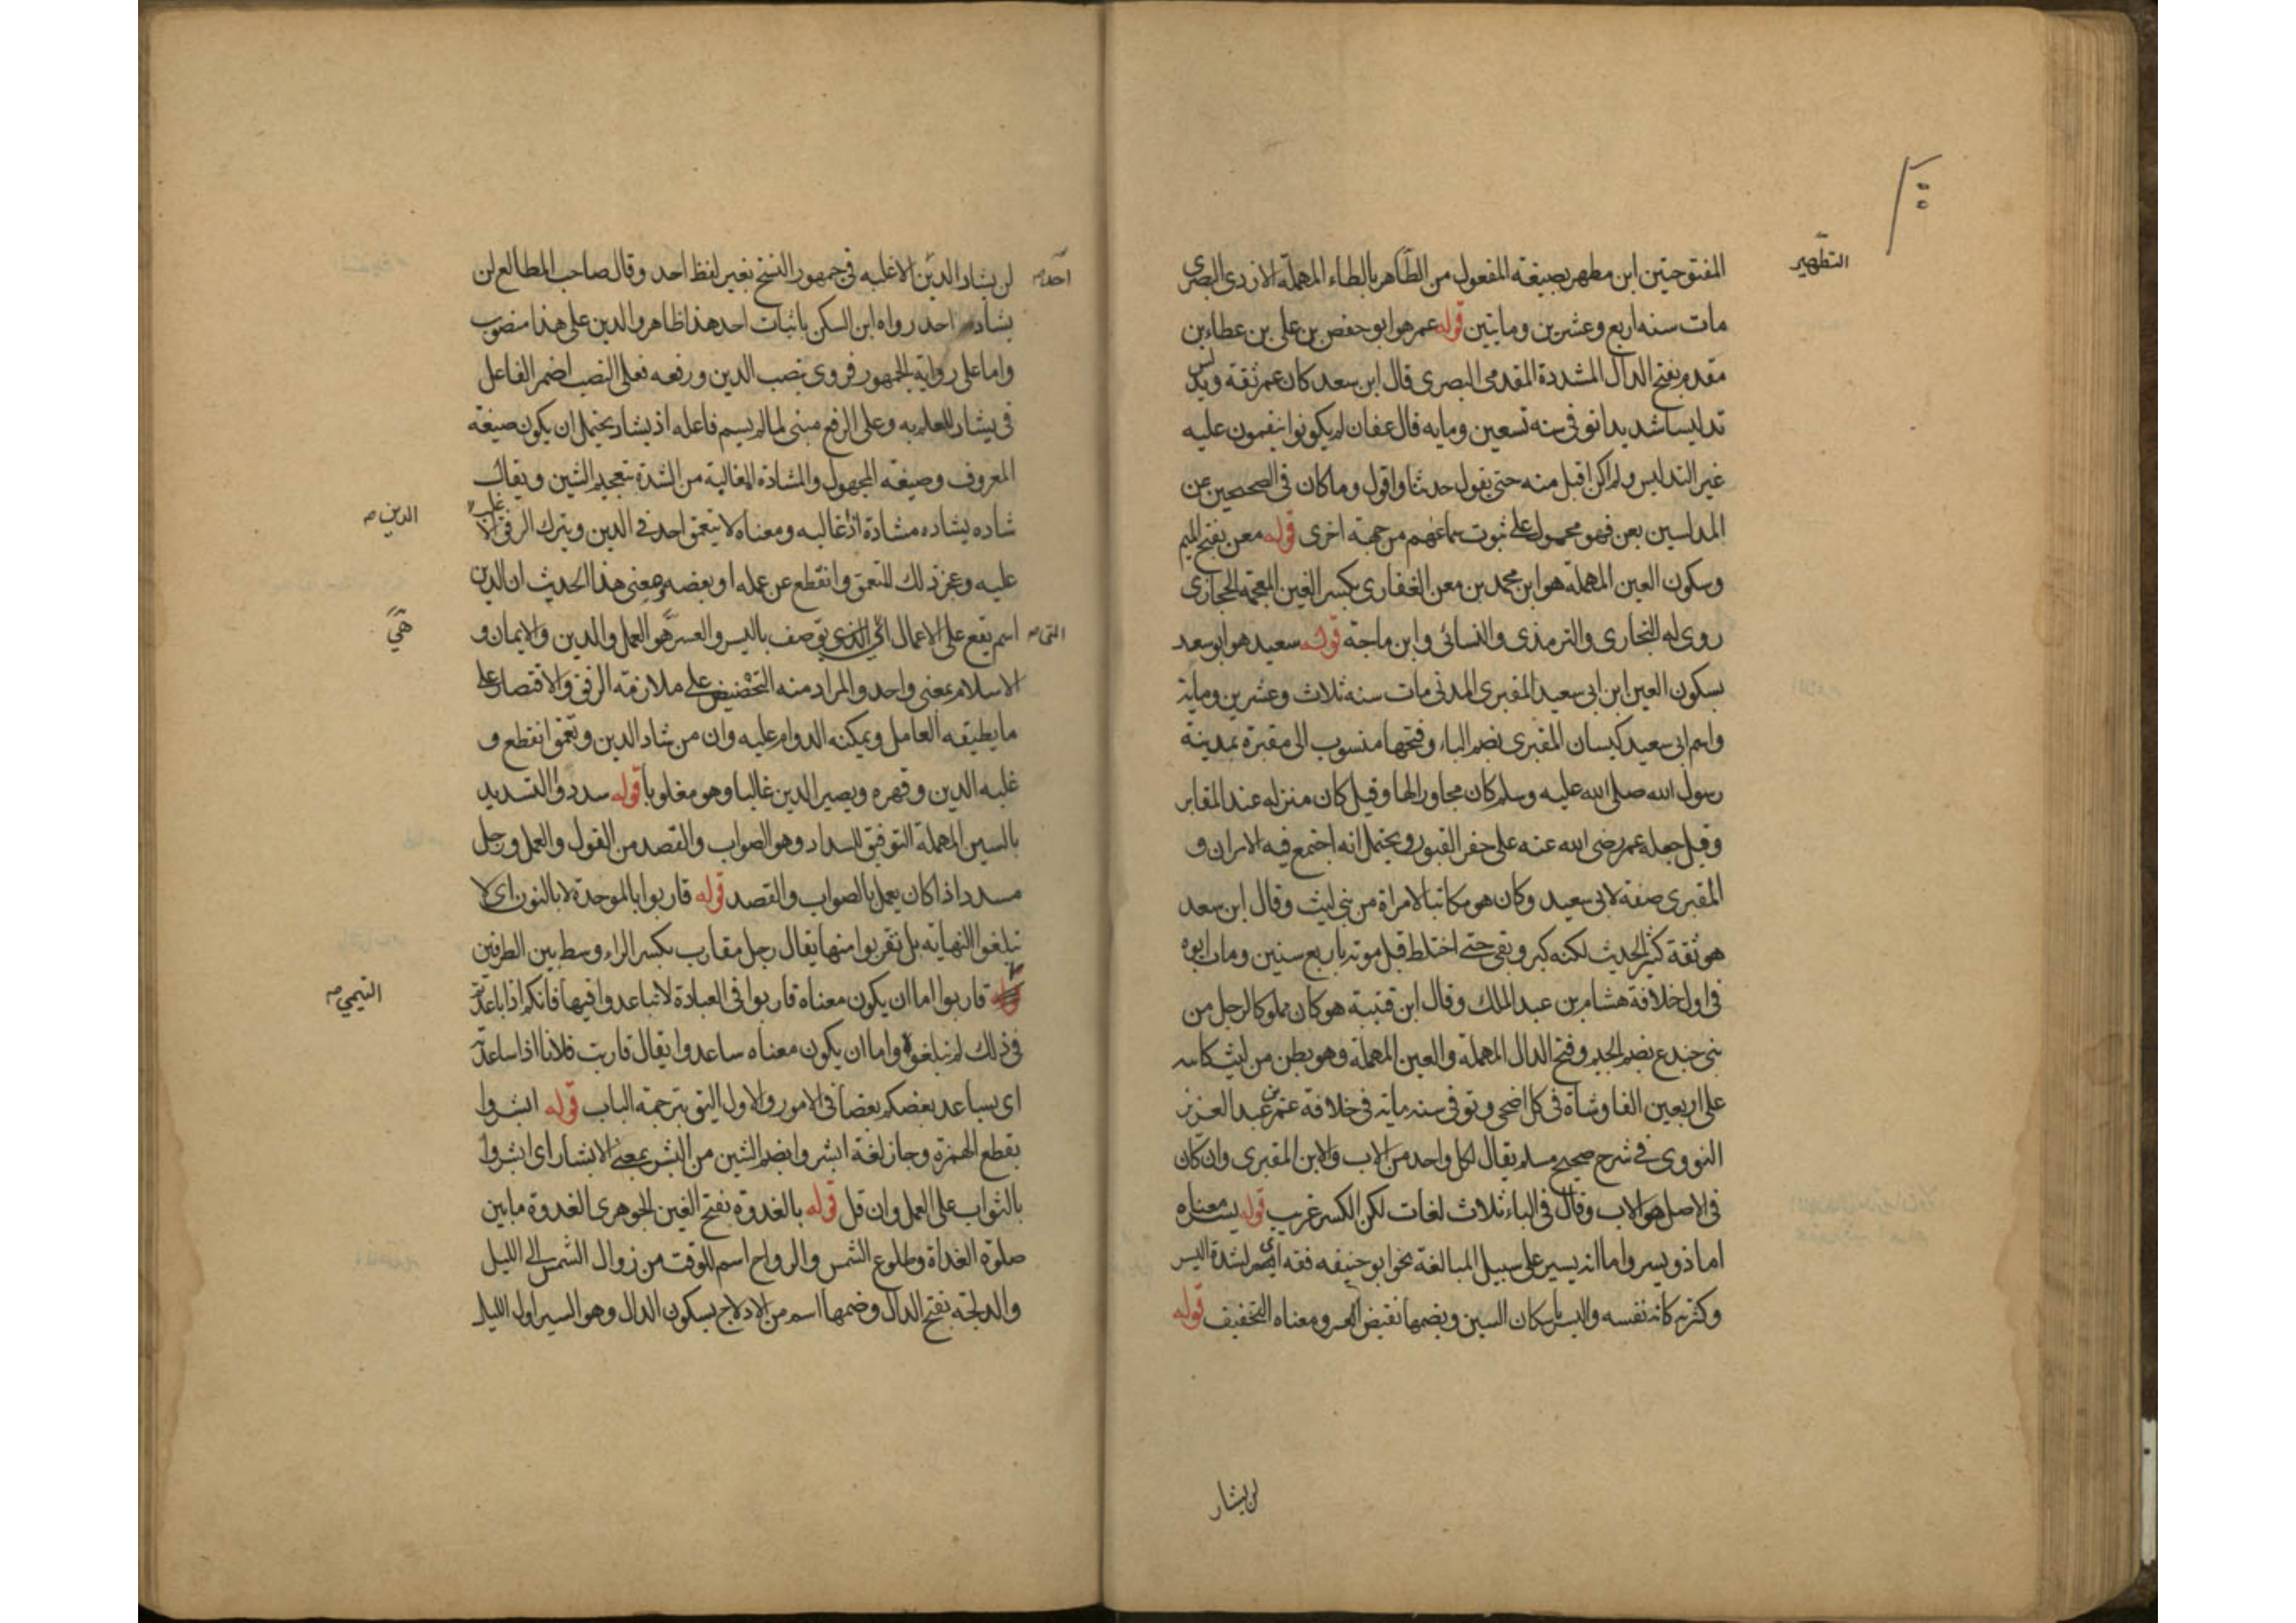 التطهير
المفتوحتين ابن مطهر بصيغة المفعول من الطاهر بالطاء المهملة الازدى البصرى
مات سنه اربع وعشرين ومايتين قوله عمر هو ابو حفص بن على بن عطاء بن
مقدم بفتح الدال المشددة المقدمى البصرى قال ابن سعد كان عمر ثقة ويدلس
تدليسا شديدا توفى سنه تسعين ومايه قال عفان لم يكونوا ينقمون عليه
غير التدليس ولم اكن اقبل منه حتى يقول حدثنا واقول وما كان فى الصحيحين عن
المدلسين بعن فهو محمول على ثبوت سماعهم من جهة اخرى قوله معن بفتح الميم
وسكون العين المهملة هو ابن محمد بن معن الغفارى بكسر الغين المعجمة الحجازى
روى له البخارى والترمذى والنسائى وابن ماجة قوله سعيد هو ابو سعد
بسكون العين ابن ابى سعيد المقبرى المدنى مات سنه ثلاث وعشرين وماية
واسم ابى سعيد كيسان المقبرى بضم الباء وفتحها منسوب الى مقبرة بمدينة
رسول الله صلى الله عليه وسلم كان مجاورا لها وقيل كان منزله عند المقابر
وقيل جعله عمر رضى الله عنه على حفر القبور ويحتمل انه اجتمع فيه الامران و
المقبرى صفة لابى سعيد وكان هو مكاتبا لامراة من بنى ليث وقال ابن سعد
هو ثقة كثير الحديث لكنه كبر وبقى حتى اختلط قبل موته باربع سنين ومات ابوه
فى اول خلافة هشام بن عبد الملك وقال ابن قتيبة هو كان مملوكا لرجل من
بنى جندع بضم الجيم وفتح الدال المهملة والعين المهملة وهو بطن من ليث كاتبه
على اربعين الفا وشاة فى كل اضحى وتوفى سنه ماية فى خلافة عمر بن عبد العزيز
النووى فى شرح صحيح مسلم يقال لكل واحد من الاب والابن المقبرى وان كان
فى الاصل هو الاب وقال فى الباء ثلاث لغات لكن الكسر غريب قوله يسر معناه
اما ذو يسر واما انه يسير على سبيل المبالغة نحو ابو حنيفه فقه اى لشدة اليسر
وكثرته كانه نفسه واليسر باسكان السين وبضمها نقيض العسر ومعناه التخفيف قوله
لن يشار
احد
لن يشاد الدين الا غلبه فى جمهور النسخ بغير لفظ احد وقال صاحب المطالع لن
يشاد احد رواه ابن السكن باثبات احد هذا ظاهر والدين على هذا منصوب
واما على رواية الجمهور فروى بنصب الدين ورفعه فعلى النصب اضمر الفاعل
فى يشاد للعلم به وعلى الرفع مبنى لما لم يسم فاعله اذ يشاد يحتمل ان يكون صيغة
المعروف وصيغة المجهول والمشادة المغالبة من الشدة بتعجيم الشين ويقال
شاده يشاده مشادة اذا غالبه ومعناه لا يتعمق احد فى الدين ويترك الرفق الا غلب
الدين
عليه وعجز ذلك المتعمق وانقطع عن عمله او بعضه ومعنى هذا الحديث ان الدين
التى
اسم يقع على الاعمال توصف باليسر والعسر هو العمل والدين والايمان و
هى
الاسلام بمعنى واحد والمراد منه التحضيض على ملازمة الرفق والاقتصار على
ما يطيقه العامل ويمكنه الدوام عليه وان من شاد الدين وتعمق انقطع و
غلبه الدين وقهره ويصير الدين غالبا وهو مغلوبا قوله سددوا التسديد
بالسين المهملة التوفيق للسداد وهو الصواب والقصد من القول والعمل ورجل
مسدد اذا كان يعمل بالصواب والقصد قوله قاربوا بالموحدة لا بالنون اى لا
تبلغوا النهاية بل تقربوا منها يقال رجل مقارب بكسر الراء وسط بين الطرفين
التيمى
قاربوا اما ان يكون معناه قاربوا فى العبادة لا تباعدوا فيها فانكم اذا باعدتم
فى ذلك لم تبلغوه واما ان يكون معناه ساعدوا يقال قاربت فلانا اذا ساعدته
اى يساعد بعضكم بعضا فى الامور والاول اليق بترجمة الباب قوله ابشروا
بقطع الهمزة وجاز لغة ابشروا بضم الشين من البشر بمعنى الابشار اى ابشروا
بالثواب على العمل وان قل قوله بالغدوة بفتح الغين الجوهرى الغدوة ما بين
صلوة الغداة وطلوع الشمس والرواح اسم للوقت من زوال الشمس الى الليل
والدلجة بفتح الدال وضمها اسم من الادلاج بسكون الدال وهو السير اول الليل